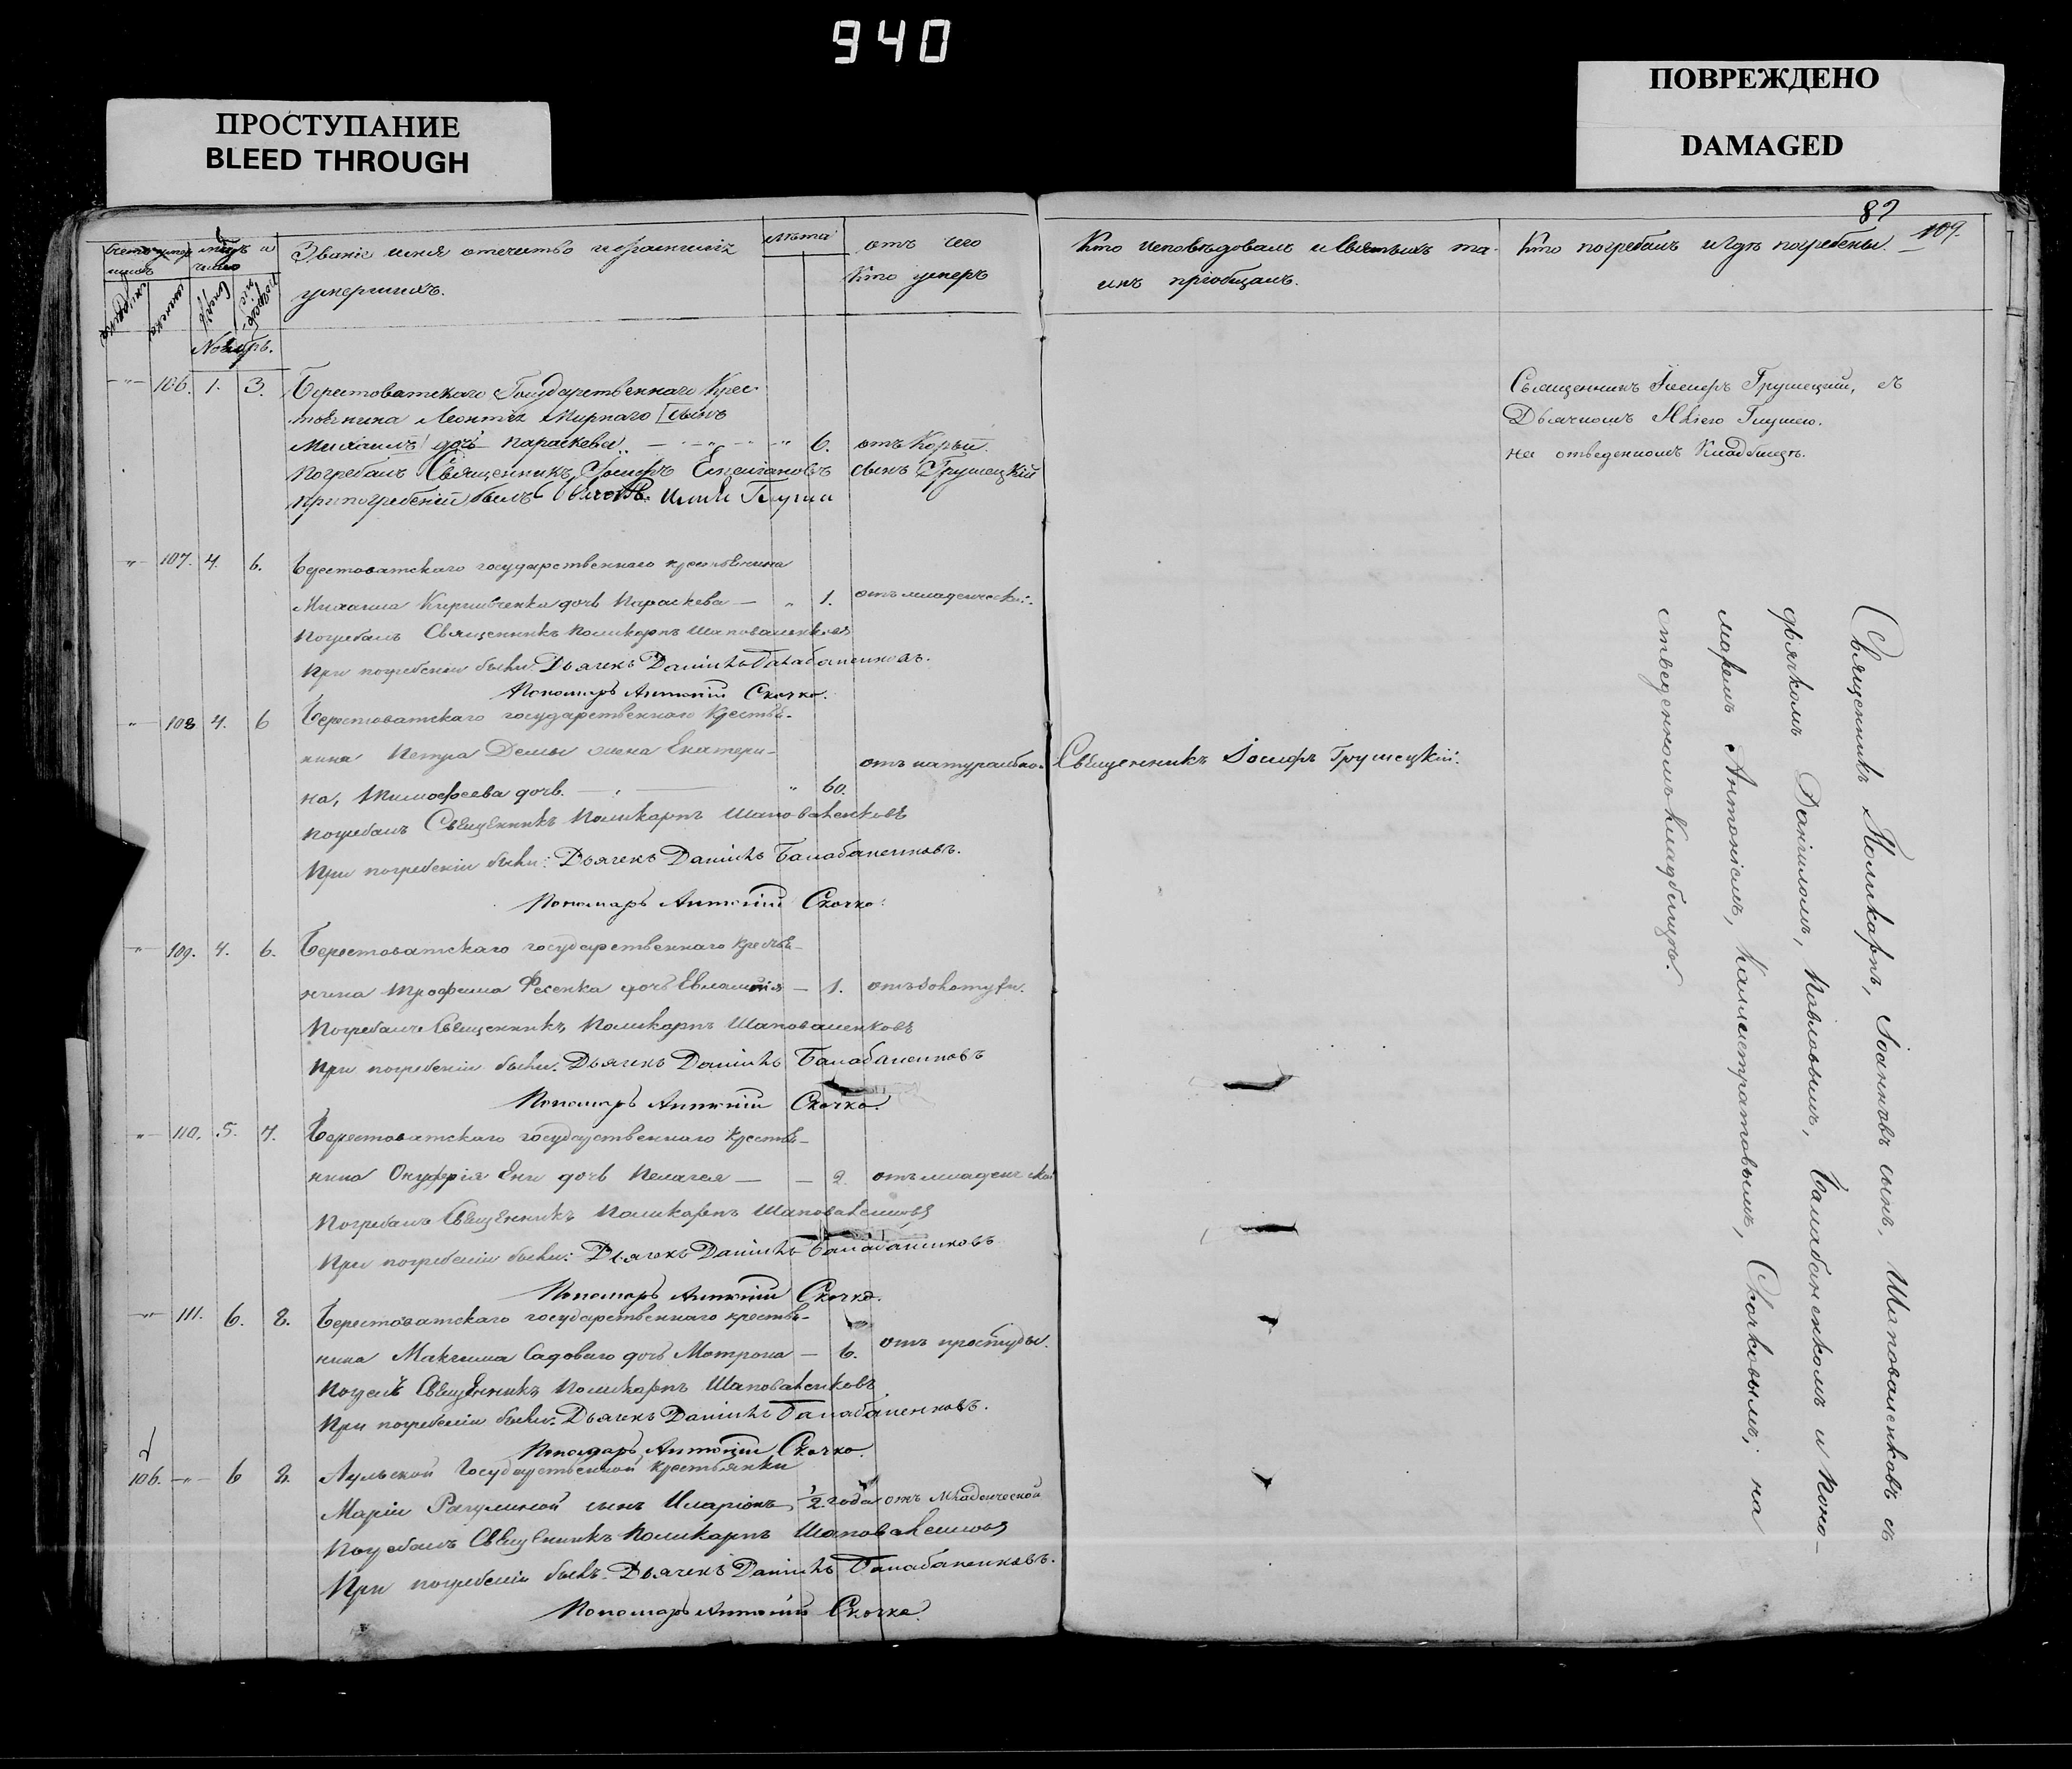 940
ПРОСТУПАНИЕ
BLEED THROUGH
ПОВРЕЖДЕНО
DAMAGED
82
109.
Званіе имя отечество и фамилія
умершихъ.
лѣта
отъ чего
Кто умеръ
Кто исповѣдовалъ и Святыхъ та-
инъ пріобщалъ.
Кто погребалъ и гдѣ погребены.
Ноябрь.
106. 1. 3. Берестоватскаго Государственнаго Крес-
тьянина Леонтія Мирнаго
дочь Параскева 6. отъ Кори.
Погребалъ Священникъ Іосифъ сынъ Грушецкій
При погребеніи былъ
Священникъ Іосифъ Грушецкій, съ
Дьячкомъ
на отведенномъ Кладбищѣ.
107. 4. 6. Берестоватскаго государственнаго крестьянина
Михаила дочь Параскева — 1. отъ младенческой.
Погребалъ Священникъ Поликарпъ Шаповаленковъ
При погребеніи были: Дьячекъ Даніилъ Балабаненковъ.
Пономарь Антоній Скочко.
108 4. 6 Берестоватскаго государственнаго Крестья-
нина Петра Демы жена Екатери-
на, Тимофеева дочь. — 60. отъ натуральной
Священникъ Іосифъ Грушецкій.
Погребалъ Священникъ Поликарпъ Шаповаленковъ
При погребеніи были: Дьячекъ Даніилъ Балабаненковъ.
Пономарь Антоній Скочко.
109. 4. 6. Берестоватскаго государственнаго крестья-
нина Трофима Фесенка дочь Евлампія — 1. отъ золотухи.
Погребалъ Священникъ Поликарпъ Шаповаленковъ
При погребеніи были: Дьячекъ Даніилъ Балабаненковъ
Пономарь Антоній Скочко.
110. 5. 7. Берестоватскаго государственнаго крестья-
нина Онуфрія дочь Пелагея — 2. отъ младенческой
Погребалъ Священникъ Поликарпъ Шаповаленковъ
При погребеніи были: Дьячекъ Даніилъ Балабаненковъ
Пономарь Антоній Скочко.
111. 6. 8. Берестоватскаго государственнаго крестья-
нина Максима Садоваго дочь Мотрона — 6. отъ простуды.
Священникъ Поликарпъ Шаповаленковъ
При погребеніи были: Дьячекъ Даніилъ Балабаненковъ.
Пономарь Антоній Скочко.
106. 6 8. Аульской Государственной крестьянки
Маріи сынъ Иларіонъ 1/2 года отъ Младенческой
Погребалъ Священникъ Поликарпъ Шаповаленковъ
При погребеніи былъ: Дьячекъ Даніилъ Балабаненковъ.
Пономарь Антоній Скочко.
Священникъ Поликарпъ, Іоанновъ сынъ, Шаповаленковъ съ
дьячкомъ Даніиломъ, Павловымъ, Балабаненкомъ и Поно-
маремъ Антоніемъ, Каллистратовымъ, Скочковымъ; на
отведенномъ Кладбищѣ.